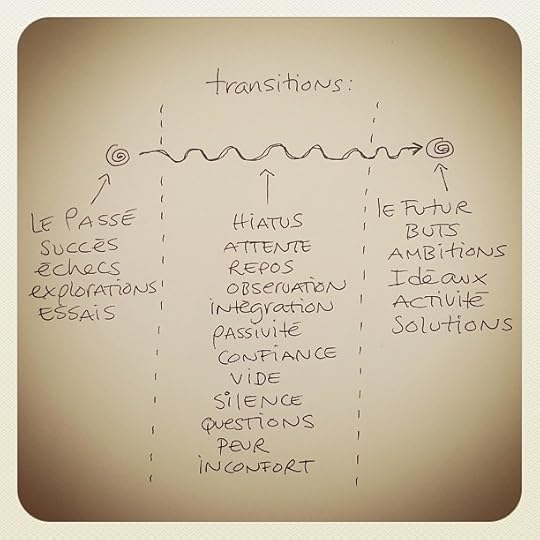 transitions:
LE PASSÉ
SUCCÈS
échecs
explorations
ESSAIS
HIATUS
ATTENTE
REPOS
OBSERVATION
intégration
PASSIVITÉ
CONFIANCE
VIDE
SILENCE
QUESTIONS
PEUR
INCONFORT
le FUTUR
BUTS
AMBITIONS
Idéaux
ACTIVITÉ
SOLUTIONS